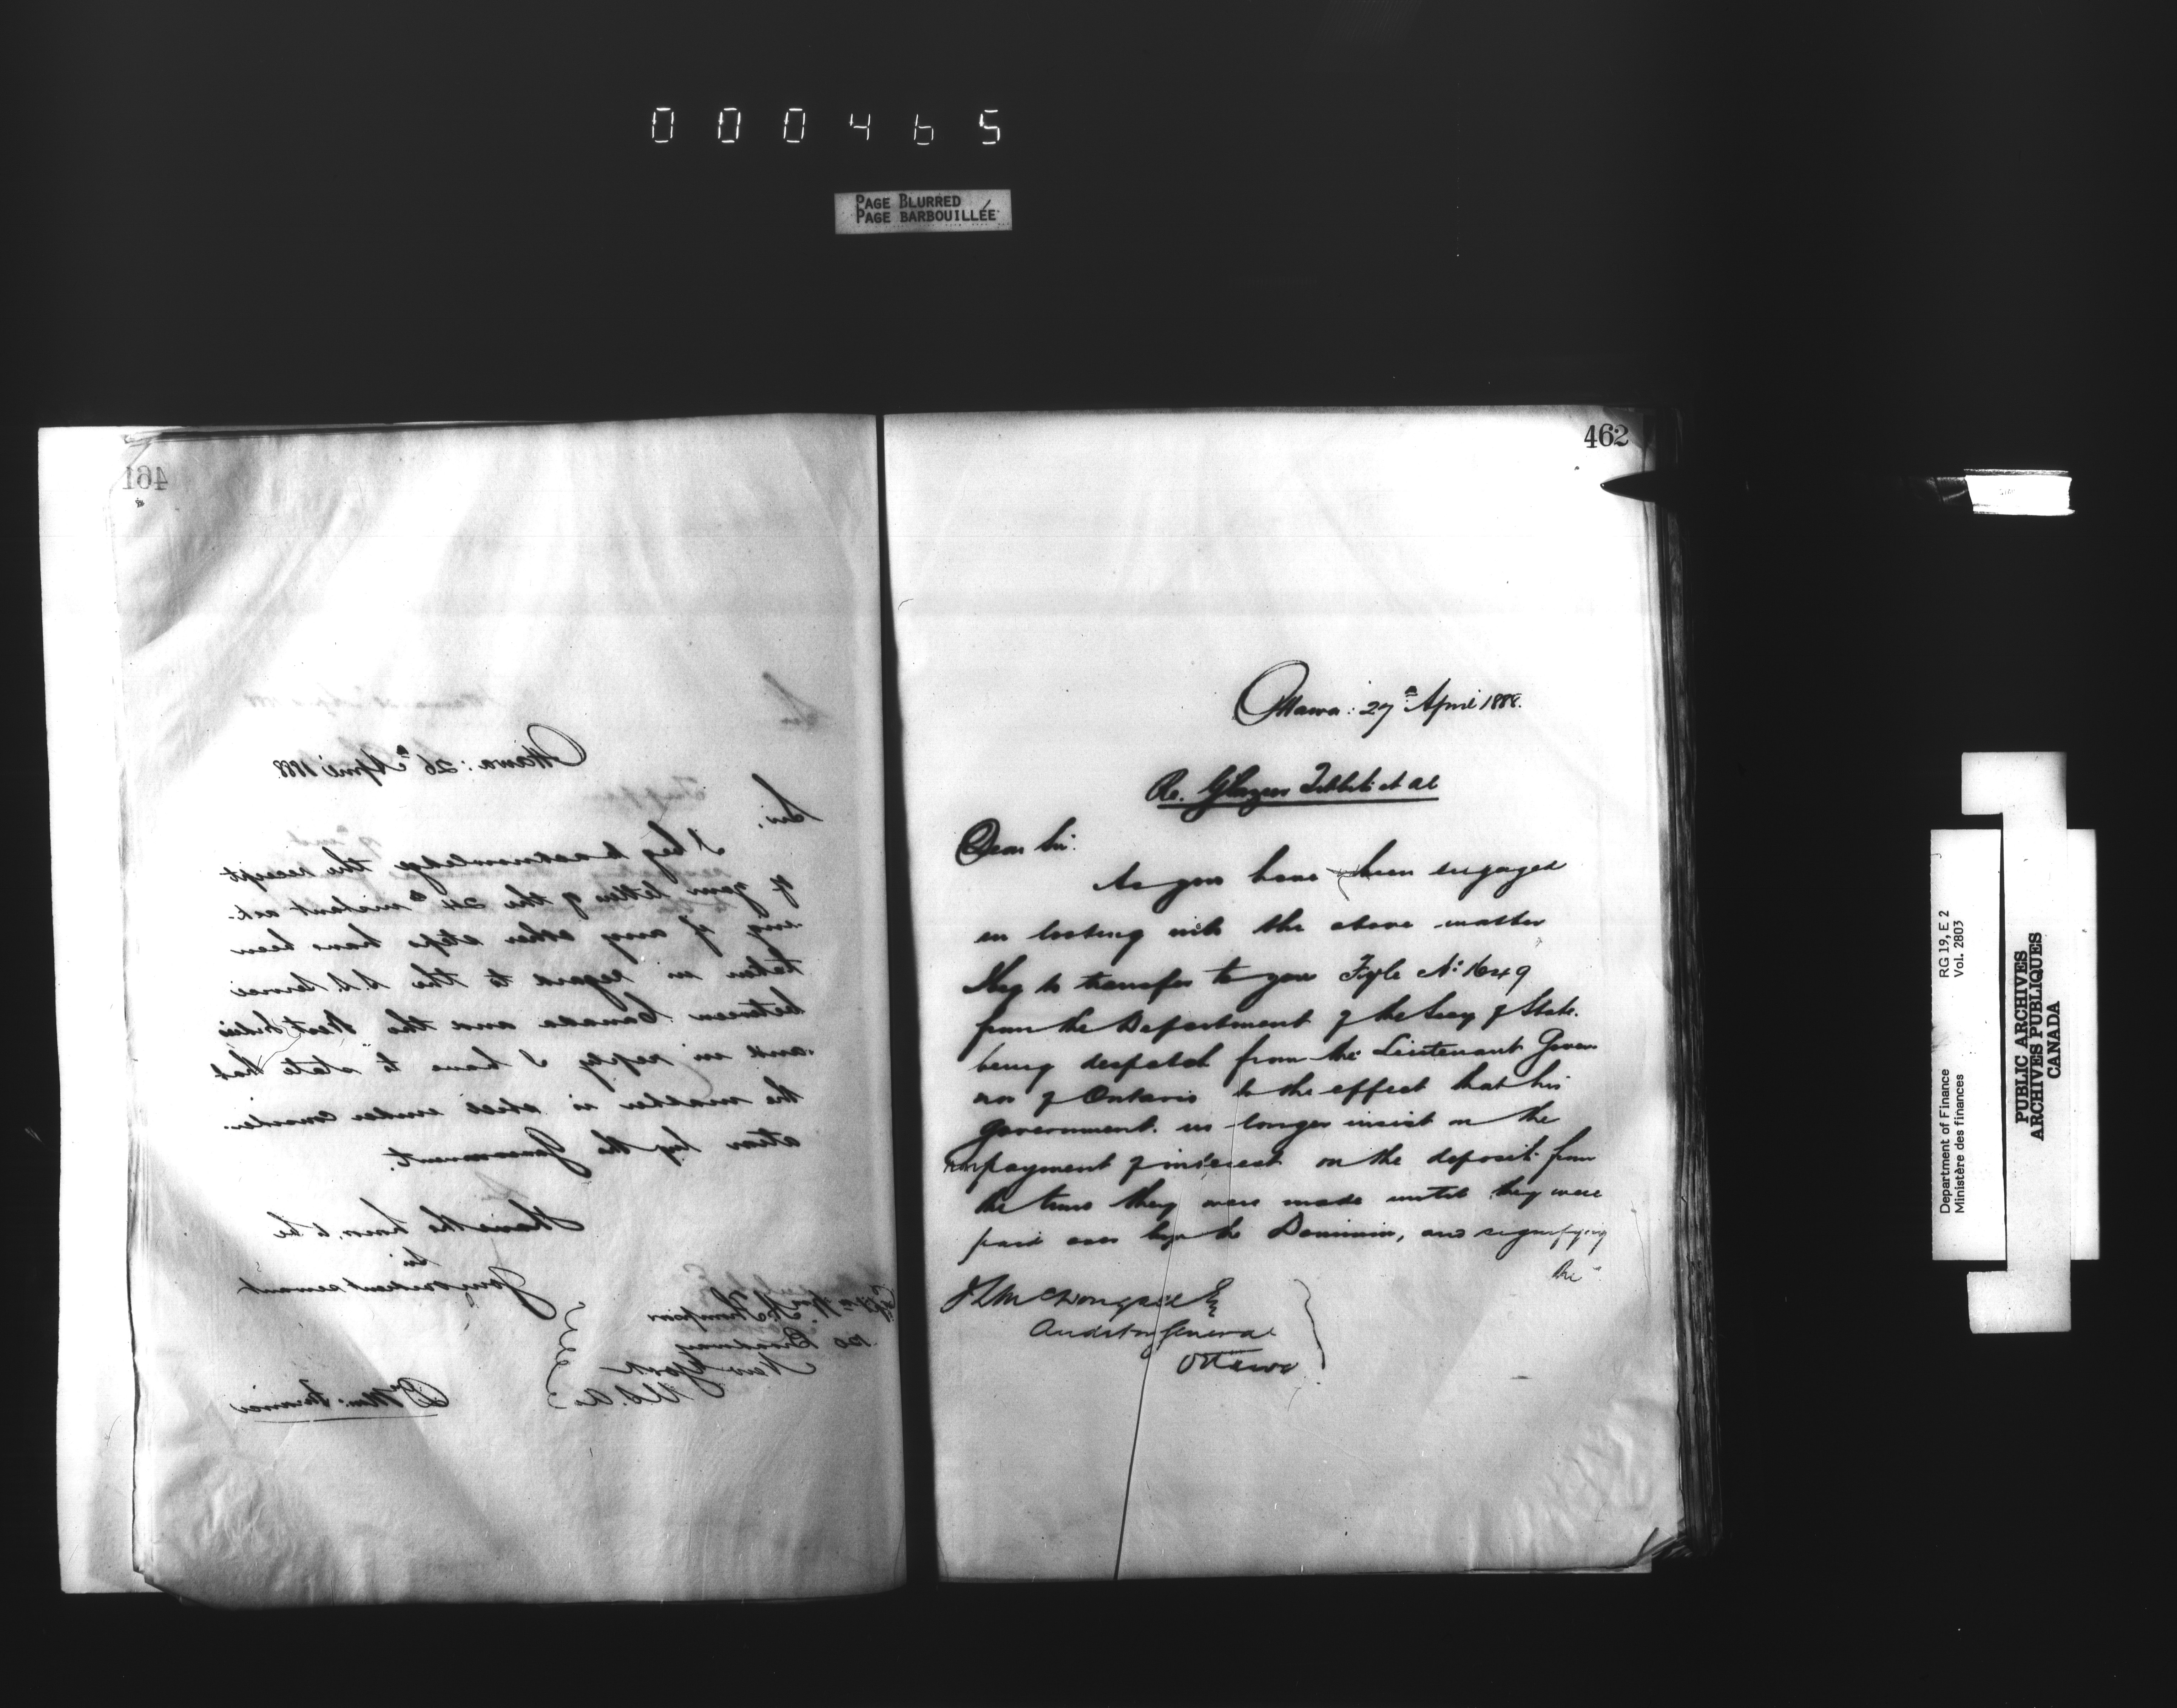 000465
PAGE BLURRED
PAGE BARBOUILLÉE
461
Ottawa: 26th April 1888
Sir,
I beg to acknowledge the receipt
of your letter of the 24th instant ask-
ing if any other steps have been
taken in regard to the S.S. Service
between Canada and the West Indies
and in reply I have to state that
the matter is still under consider-
ation by the Government.
I have the honor to be
Sir
Your obedient servant
Thompson
Broadway
New York
U.S.A.
462
Ottawa: 27th April 1888.
Re. et al
Dear Sir:
As you have been engaged
in looking into the above matter
I beg to transfer to you Fyle No: 1649
from the Department of the Secy of State.
being despatch from the Lieutenant Gover-
nor of Ontario to the effect that his
Government. no longer insist on the
payment of interest on the deposit from
the time they were made until they were
paid over by the Dominion, and signifying
the
J L McDougall Esq
Auditor General
Ottawa
Department of Finance RG 19, E 2
Ministère des finances Vol. 2803
PUBLIC ARCHIVES
ARCHIVES PUBLIQUES
CANADA